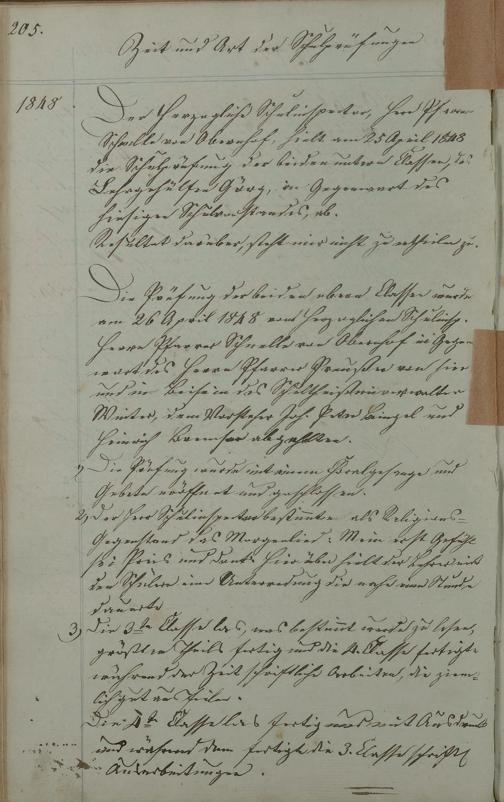 205.
Zeit und Art der Schulprüfungen
1848
Der Herzogliche Schulinspector, Herr Pfarrer
Schnelle von Obernhof, hielt am 25 April 1848
die Schulprüfung der beiden untern Classen, des
Lehrgehülfen Görg, in Gegenwart des
hiesigen Schulvorstandes, ab.
Resultat darüber, steht mir nicht zu urtheilen zu.
Die Prüfung der beiden obern Classen wurde
am 26 April 1848 vom Herzoglichen Schulinsp.
Herrn Pfarrer Schnelle von Obernhof in Gegen-
wart des Herrn Pfarrer von hier
und im Beisein des Schultheißereiverwalter
Winter, dem Vorsteher Joh. Peter und
Heinrich Bremser abgehalten.
1, Die Prüfung wurde mit einem Choralgesange und
Gebete eröffnet und geschlossen.
2, Der Herr Schulinspector bestimmte als Religions-
Gegenstand das Morgenlied: Mein erst Gefühl
sei Preis und Dank. Hierüber hielt der Lehrer mit
den Schülern eine Unterredung die nahe eine Stunde
dauerte
3, Die 3te Classe las, was bestimmt wurde zu lesen,
größten Theils fertig und die 4. Classe fertigte
während der Zeit schriftliche Arbeiten, die ziem-
lich gut ausfielen.
Die 4te Classe las fertig und mit Ausdruck
und während dem fertigte die 3. Classe schriftl.
Ausarbeitungen.